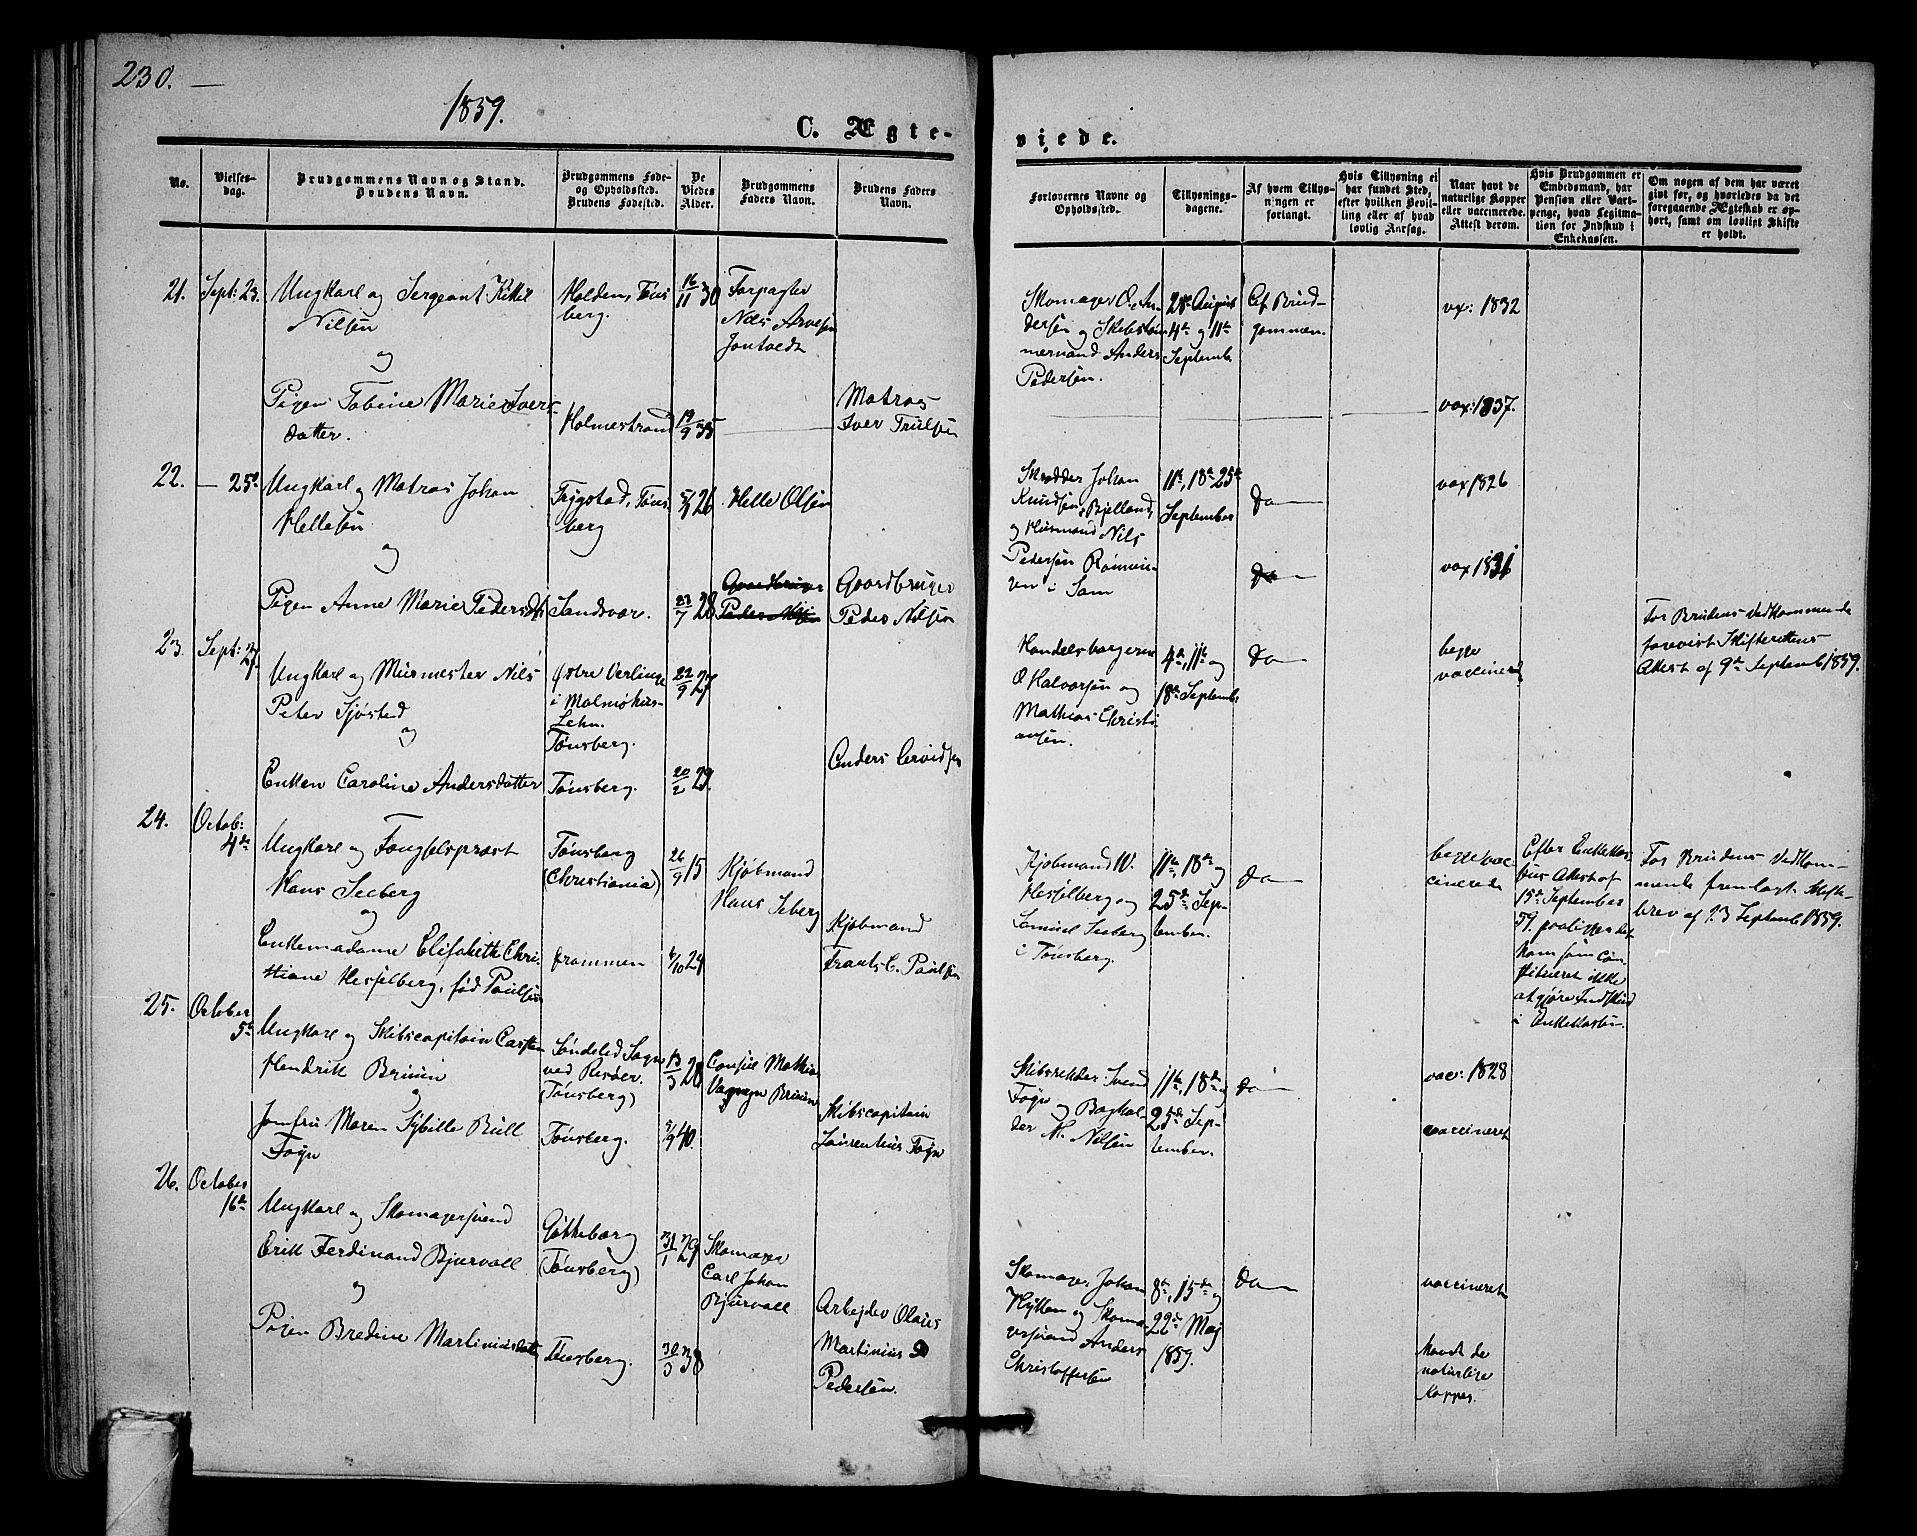 230. —
1859.
C. Ægte-
viede.
No.
Vielses-
dag.
Brudgommens Navn og Stand.
Brudens Navn.
Brudgommens Føde-
og Opholdssted.
Brudens Fødested.
De
Viedes
Alder.
Brudgommens
Faders Navn.
Brudens Faders
Navn.
Forlovernes Navne og
Opholdssted.
Tillysnings-
dagene.
Af hvem Tillys-
ningen er
forlangt.
Hvis Tillysning ei
har fundet Sted,
efter hvilken Bevil-
ling eller af hvad
lovlig Aarsag.
Naar havt de
naturlige Kopper
eller vaccinerede.
Attest derom.
Hvis Brudgommen er
Embedsmand, har
Pension eller Vart-
penge, hvad Legitima-
tion for Indskud i
Enkekassen.
Om nogen af dem har været
gift før, og hvorledes da det
foregaaende Ægteskab er op-
hørt, samt om lovligt Skifte
er holdt.
21.
Sept: 23.
Ungkarl og Sergeant Kittil
Nilsen
og
Pigen Tobine Marie Ivers-
datter.
Holden, Tøns
berg.
Holmestrand
16/11 30
19/9 35
Forpagter
Nels Arvesen
Jontvedt
Matros
Iver Trulsen
Skomager O. An-
dersen og Skibstøm-
mermand Anders
Pedersen.
28de August
4de og 11te
Septembr.
Af Brud-
gommen.
vax: 1832
vax: 1837.
22.
— 25de
Ungkarl og Matros Johan
Hellesen
og
Pigen Anne Marie Pedersdtr
Trygstad, Tøns-
berg
Sandsvær.
5/1 26
23/7 28
Helle Olsen
Gaardbruger
Peder Nilsen
Gaardbruger
Peder Nilsen
Skrædder Johan
Knudsen Bjelland,
og Huusmand Nils
Pedersen
i Sem
11te, 18de 25de
September
Do
Do
vax 1826
vax 1831
23.
Sept: 27.
Ungkarl og Muurmester Nils
Peter Sjøsted
og
Enken Caroline Andersdatter
Østre Verlinge
i Malmøhus-
Lehn.
Tønsberg.
Tønsberg.
22/9 27
20/2 29.
Anders Arvidsen
Handelsborgerne
O Halvorsen og
Mathias Christi-
ansen.
4de, 11te og
18de Septembr.
Do
begge
vaccinered
For Brudens Vedkommende
forevist Skifterettens
Attest af 9de Septemb 1859.
24.
Octob:
4de
Ungkarl og Fængselspræst
Hans Seeberg
og
Enkemadame Elisabeth Chri-
stiane Hesselberg, fød Paulsen
Tønsberg
(Christiania)
Drammen
26/9 15
4/10 24
Kjøbmand
Hans Seberg
Kjøbmand
Frants C. Paulsen
Kjøbmand W.
Hesselberg og
Samuel Seeberg
i Tønsberg.
11te, 18de og
25de Sep-
tember.
Do
begge vac-
cinerede
Efter Enkekas-
sens Attest af
15de September
59. paaligger det
ham som con-
stitueret ikke
at gjøre Indskud
i Enkekassen.
For Brudens Vedkom-
mende fremlagt Skifte-
brev af 23 Septemb 1859.
25.
October
5te
Ungkarl og Skibscapitain Carsten
Hendrik Bruun
og
Jomfru Maren Sybille Bull
Føyn
Søndeled Sogn
ved Risøer.
(Tønsberg)
Tønsberg.
13/3 28
5/9 40.
Consul Mathias
Bruun
Skibscapitain
Laurentius Føyn
Skibsrheder Svend
Føyn og Boghol-
der N. Nilsen
11te, 18de og
25de Sep-
tember.
Do
vac: 1828
vaccineret
26.
October
16de
Ungkarl og Skomagersvend
Erik Ferdinand Bjurvall
og
Pigen Bredine Martiniusdatter
Gøtheborg
(Tønsberg)
Tønsberg.
31/1 29
30/3 38
Skomager
Carl Johan
Bjurvall
Arbejder Olaus
Martinius
Pedersen.
Skomager Johan
Hytten og Skoma-
gersvend Anders
Christoffersen
8de, 15de og
22de Maj
1859.
Do
vaccineret
Havdt de
naturlige
Kopper.